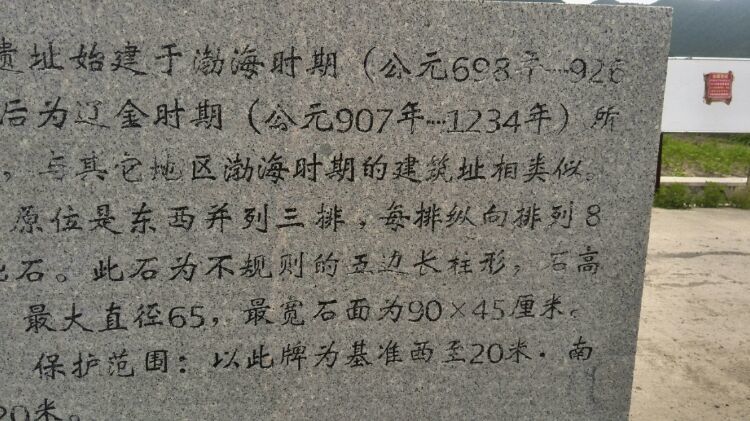 遗址始建于渤海时期（公元698年…926
后为辽金时期（公元907年…1234年）所
，与其它地区渤海时期的建筑址相类似。
原位是东西并列三排，每排纵向排列8
础石。此石为不规则的五边长柱形，石高
最大直径65，最宽石面为90×45厘米。
保护范围：以此牌为基准西至20米.南
20米。